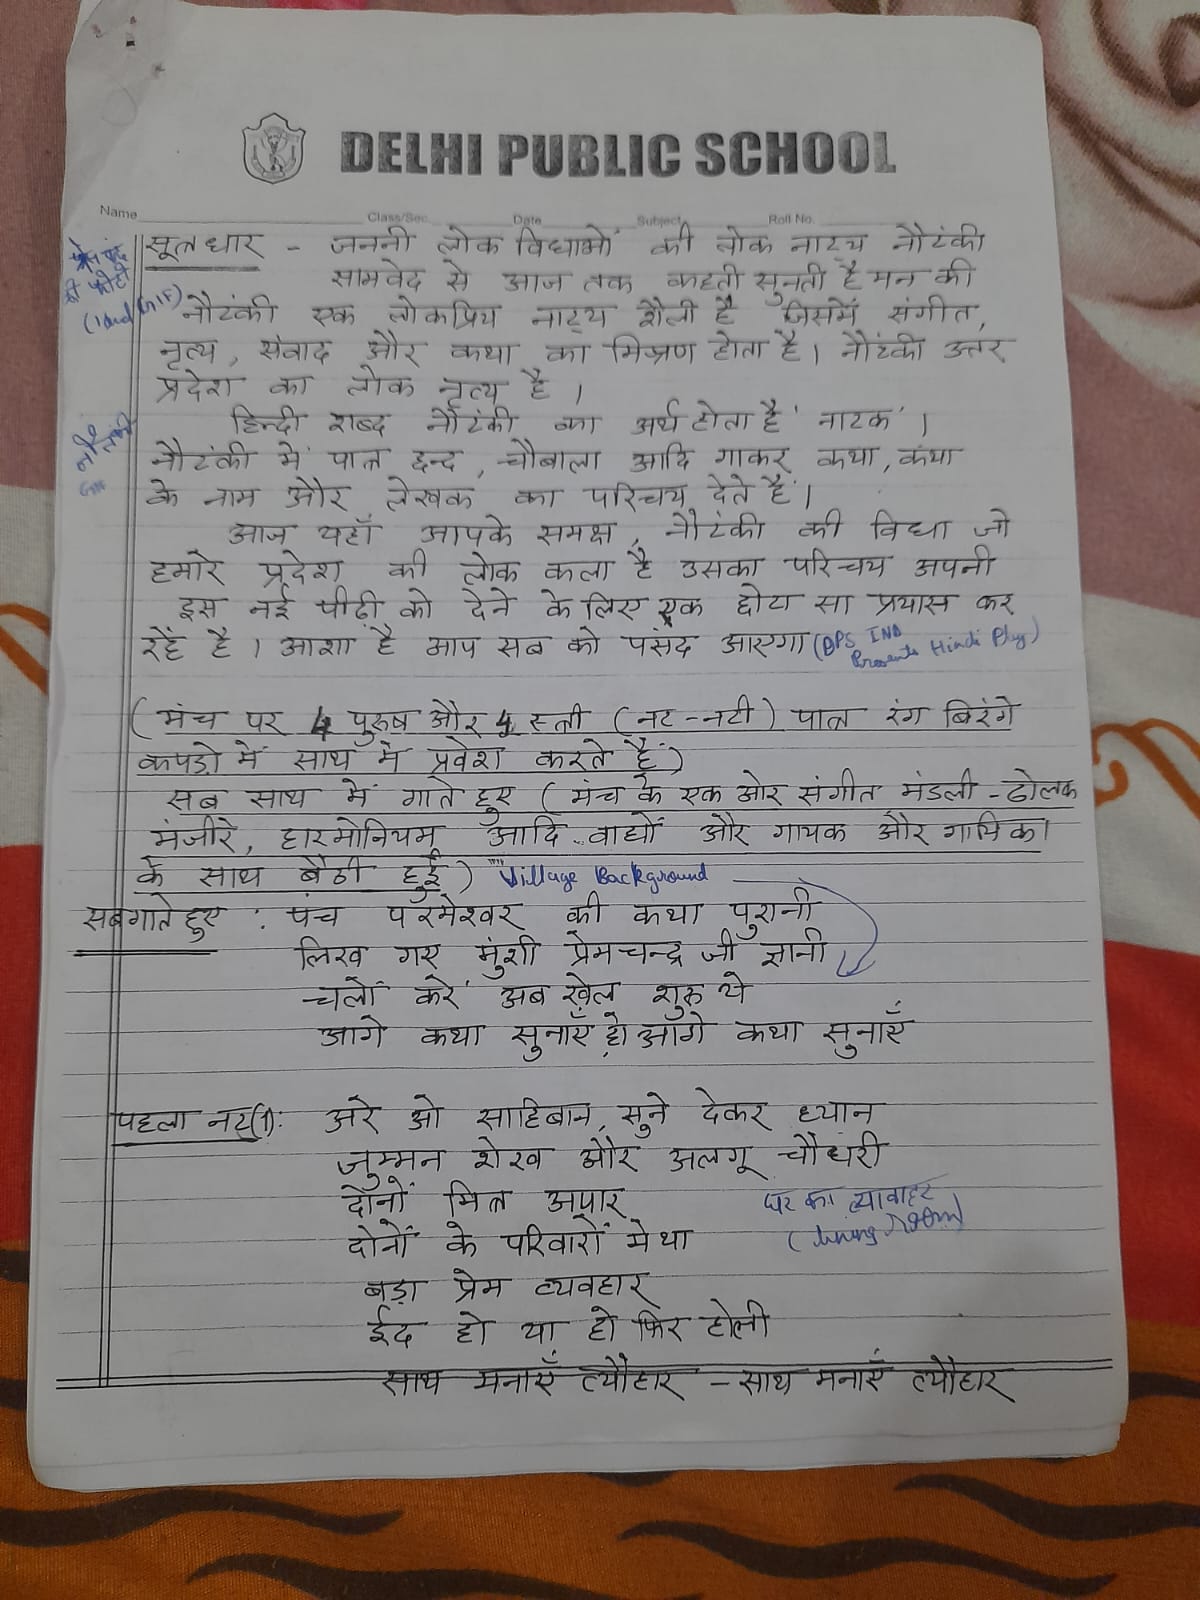 DELHI PUBLIC SCHOOL
Name Class/Sec. Date Subject Roll No.
सूत्रधार - जननी लोक विधाओं की लोक नाट्य नौटंकी
सामवेद से आज तक कहती सुनती है मन की
नौटंकी एक लोकप्रिय नाट्य शैली है जिसमें संगीत,
नृत्य, संवाद और कथा का मिश्रण होता है। नौटंकी उत्तर
प्रदेश का लोक नृत्य है।
हिन्दी शब्द नौटंकी का अर्थ होता है 'नाटक'।
नौटंकी में पात्र छन्द, चौबाला आदि गाकर कथा, कथा
के नाम और लेखक का परिचय देते हैं।
आज यहाँ आपके समक्ष, नौटंकी की विधा जो
हमारे प्रदेश की लोक कला है उसका परिचय अपनी
इस नई पीढ़ी को देने के लिए एक छोटा सा प्रयास कर
रहें है। आशा है आप सब को पसंद आएगा (DPS IND
Presents Hindi Play)
(मंच पर 4 पुरुष और 4 स्त्री (नट-नटी) पात्र रंग बिरंगे
कपड़ो में साथ में प्रवेश करते हैं)
सब साथ में गाते हुए (मंच के एक ओर संगीत मंडली - ढोलक
मंजीरे, हारमोनियम आदि वाद्यों और गायक और गायिका
के साथ बैठी हुई) Village Background
सब गाते हुए : पंच परमेश्वर की कथा पुरानी
लिख गए मुंशी प्रेमचन्द्र जी ज्ञानी
चलों करें अब खेल शुरु ये
आगे कथा सुनाएँ हो आगे कथा सुनाएँ
पहला नट(1): अरे ओ साहिबान, सुने देकर ध्यान
जुम्मन शेख और अलगू चौधरी
दोनों मित्र अपार
दोनों के परिवारों मे था
बड़ा प्रेम व्यवहार
ईद हो या हो फिर होली
साथ मनाएँ त्यौहार - साथ मनाएँ त्यौहार